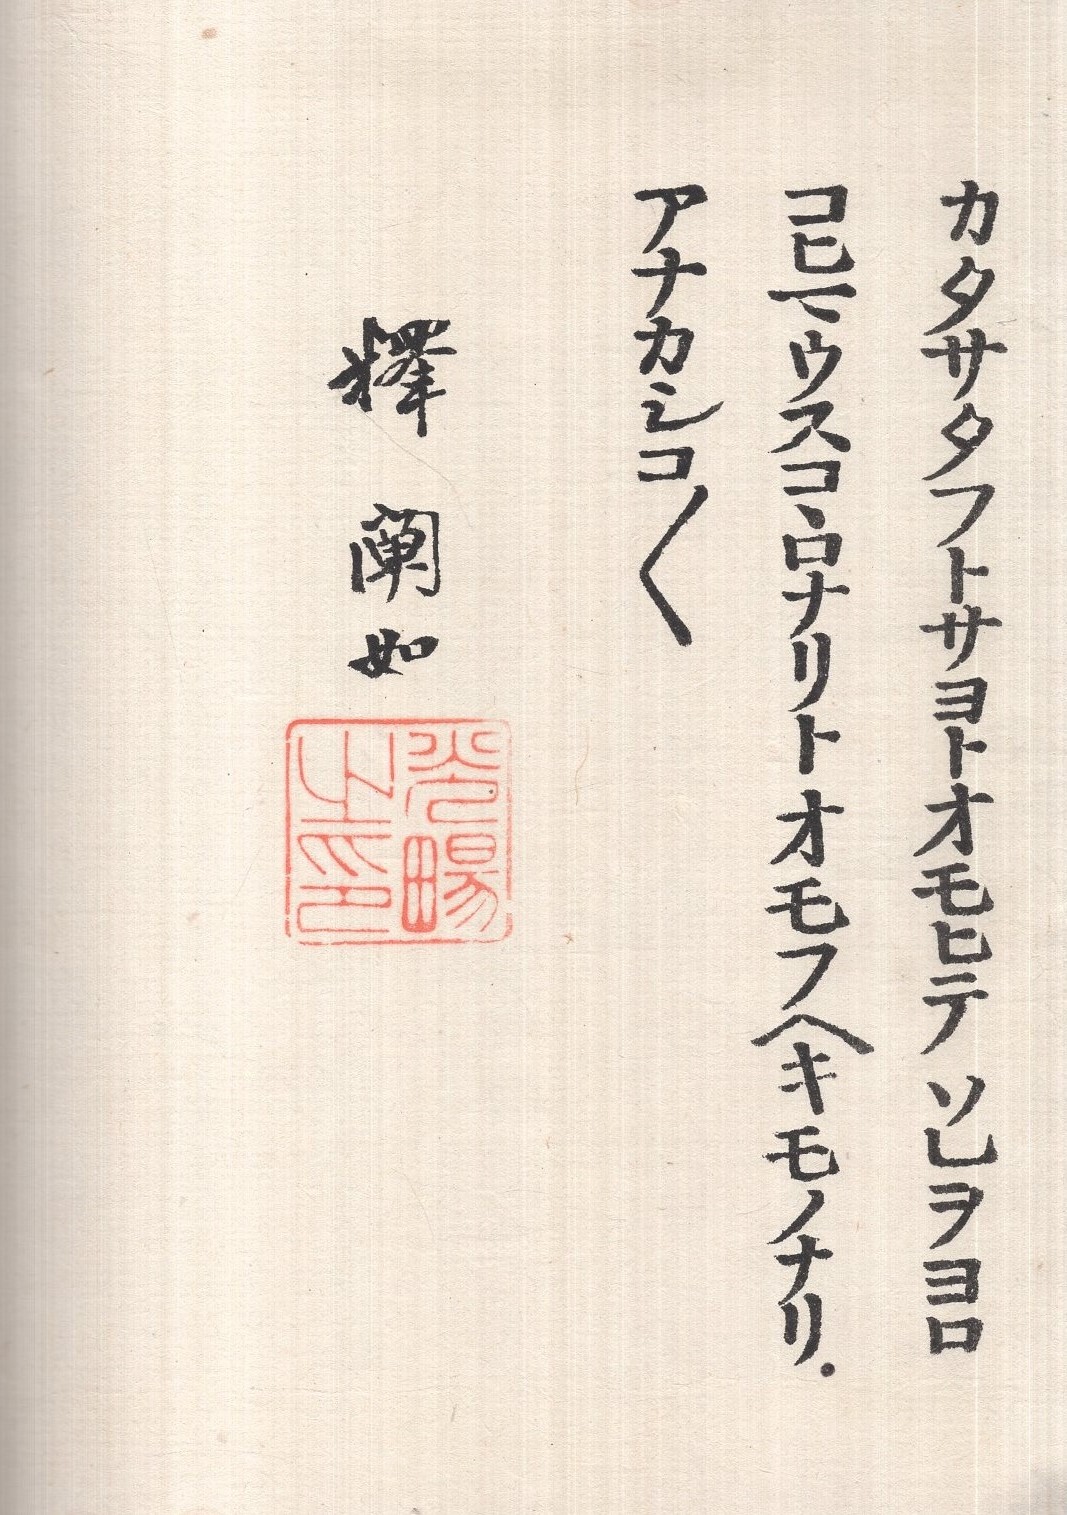 カタサタフトサヨトオモヒテ ソレヲヨロ
コヒマウスコヽロナリトオモフヘキモノナリ.
アナカシコ〱
釋 闡如
光暢
之印